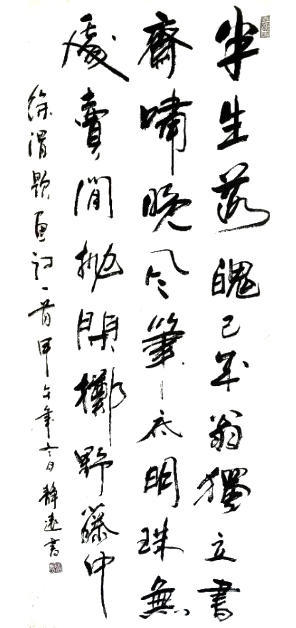 半生落魄已成翁獨立書
齋嘯晚風筆底明珠無
處賣閒拋閒擲野藤中
徐渭題畫詩一首甲午年日靜遠書